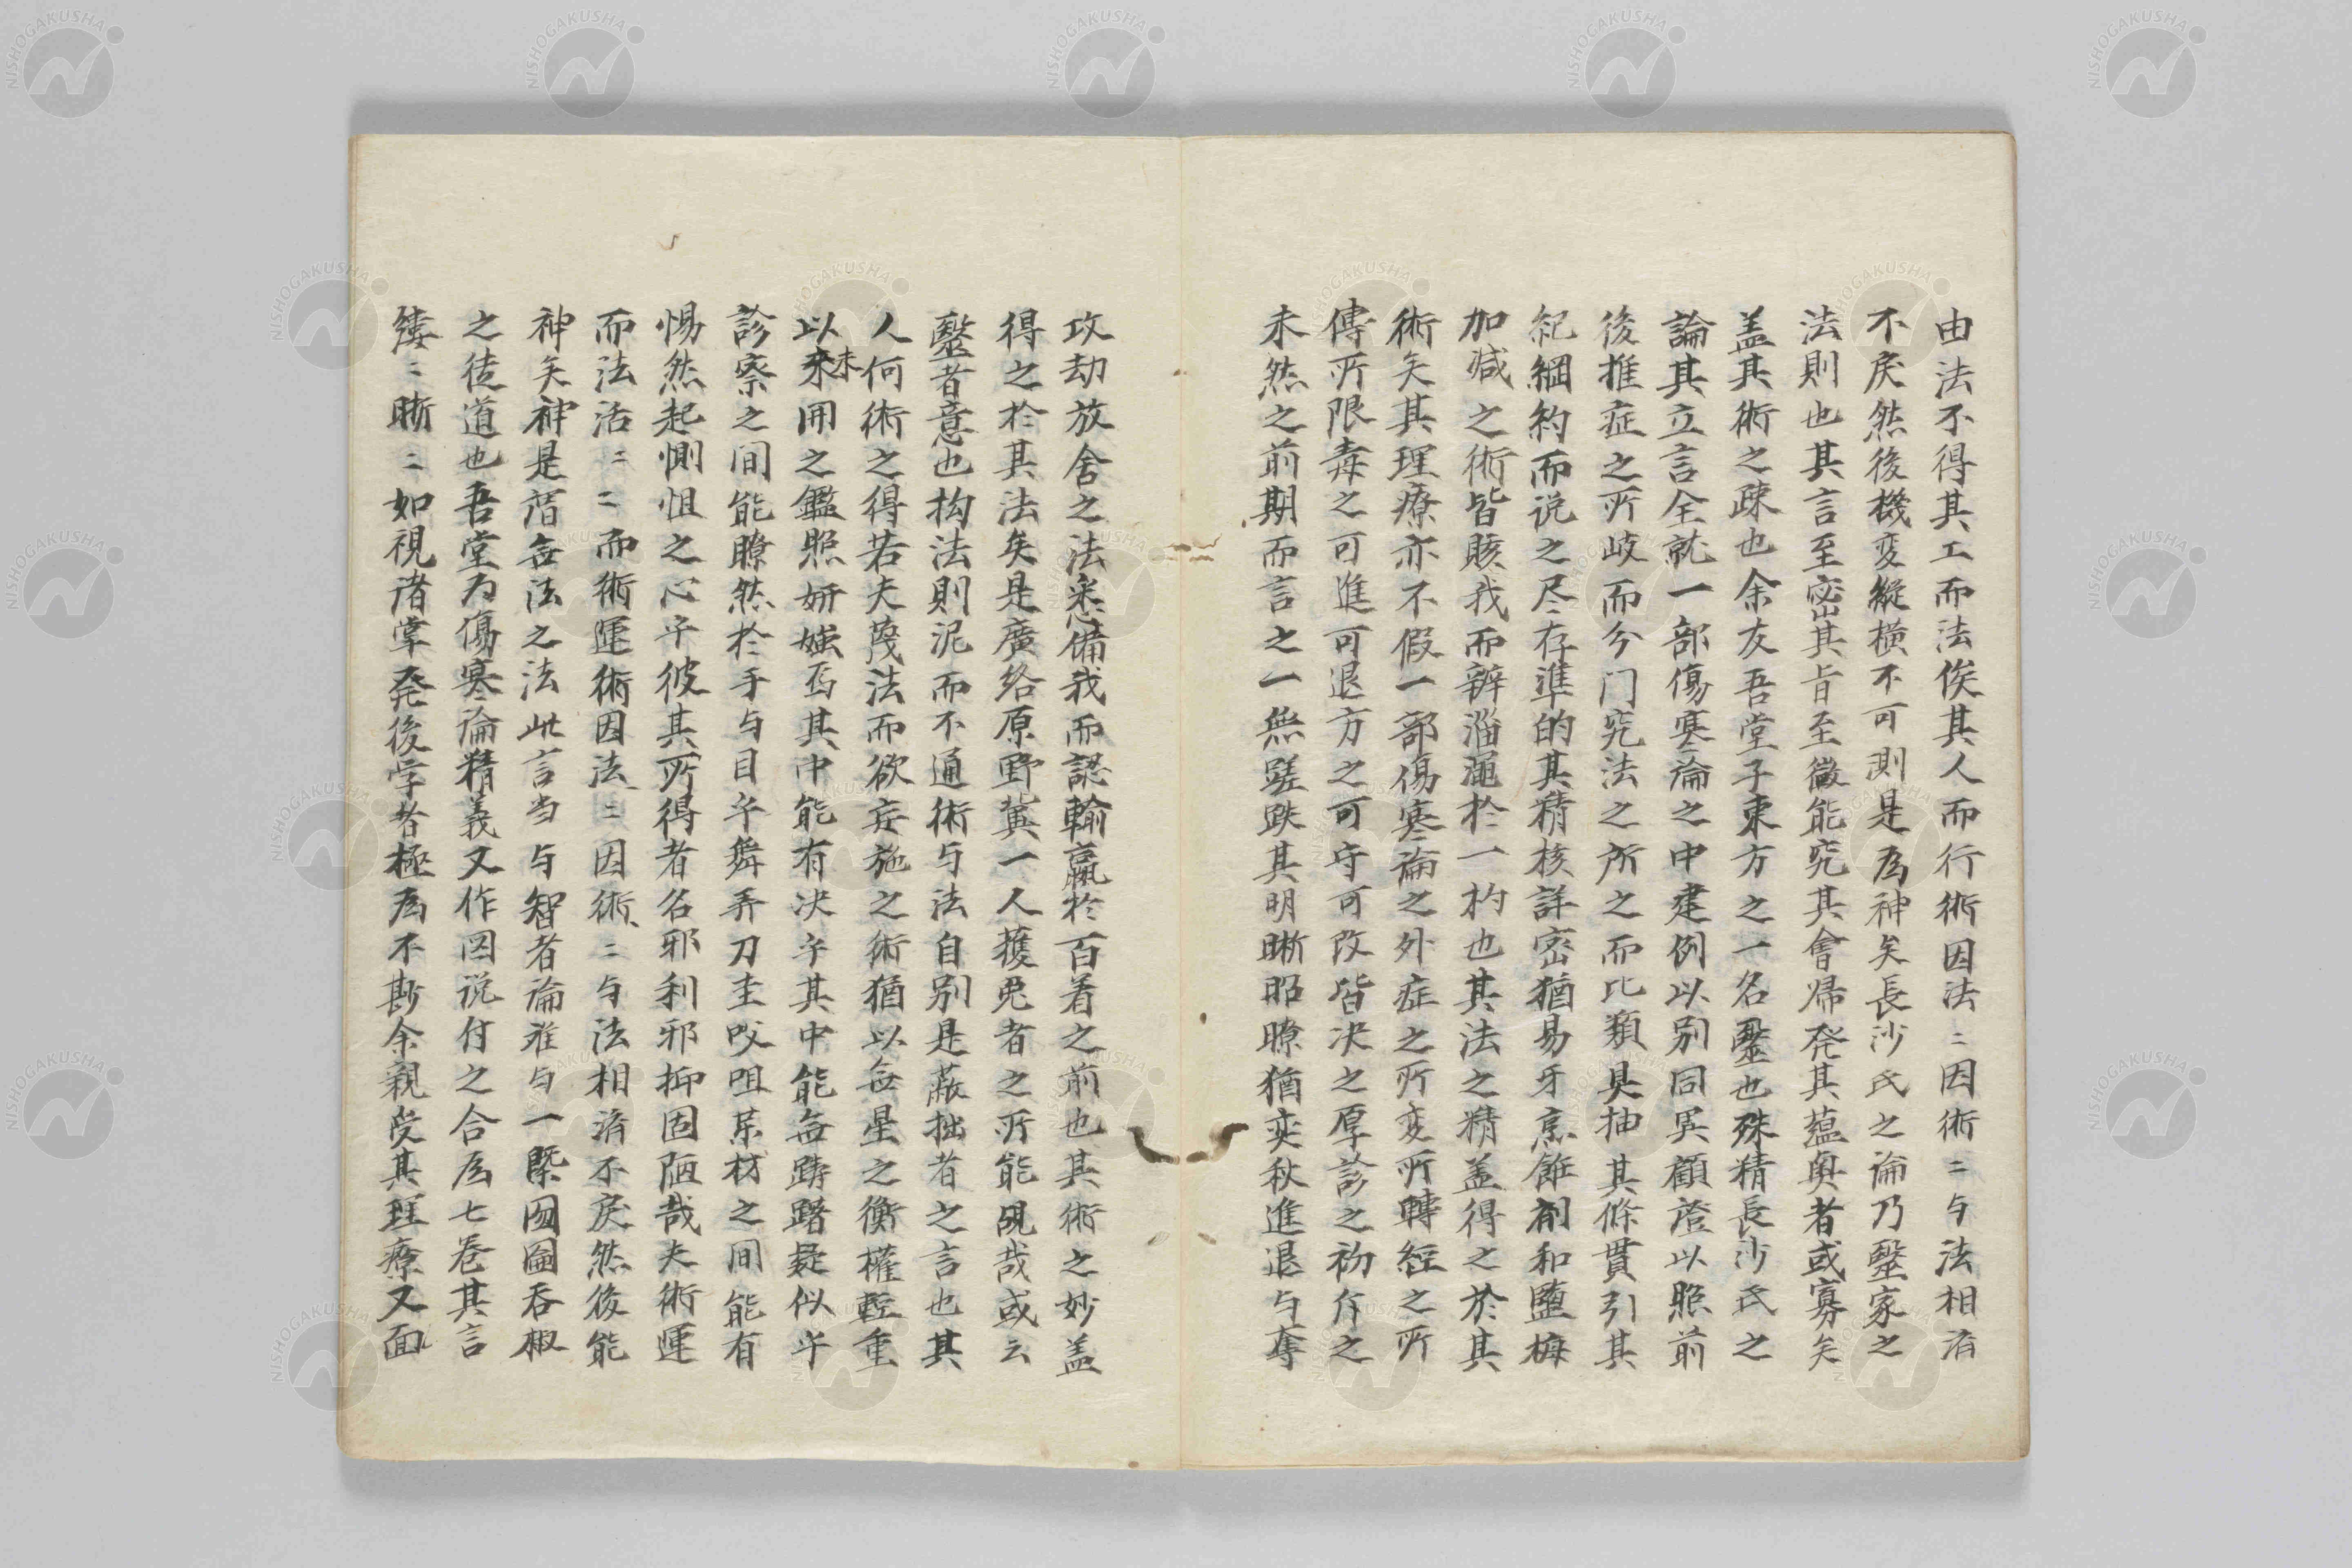 由法不得其工而法俟其人而行術因法〻因術〻与法相済
不戾然後機変縦横不可測是為神矣長沙氏之論乃毉家之
法則也其言至密其旨至微能究其會帰発其蘊奥者或寡矣
盖其術之疎也余友吾堂子東方之一名毉也殊精長沙氏之
論其立言全就一部傷寒論之中建例以別同異顧證以照前
後推症之所岐而分门究法之所之而比類具抽其條貫引其
紀綱約而説之尽存準的其精核詳密猶易牙烹餁剤和塩梅
加減之術皆賅我而辨淄澠於一杓也其法之精盖得之於其
術矣其理療亦不假一部傷寒論之外症之所変所轉経之所
傳所限毒之可進可退方之可守可改皆决之厚診之初斥之
未然之前期而言之一無蹉跌其明晰昭瞭猶奕秋進退与奪
攻劫放舍之法悉備我而認輸贏於百着之前也其術之妙盖
得之於其法矣是廣给原野冀一人獲兎者之所能覘哉或云
毉者意也拘法則泥而不通術与法自別是蔽拙者之言也其
人何術之得若夫蔑法而欲妄施之術猶以每星之衡權輕重
以来未開之鑑照妍媸焉其中能有决乎其中能每躊躇疑似乎
診察之间能瞭然於手与目乎舞弄刀圭㕮咀茱材之间能有
惕然起惻怛之心乎彼其所得者名邪利邪抑固陋哉夫術運
而法活〻〻而術運術因法〻因術〻与法相済不戾然後能
神矣神是謂每法之法此言当与智者論难与一槩囫圇吞椒
之徒道也吾堂为傷寒論精義又作図説付之合為七卷其言
縷〻晰〻如視诸掌発後学者極為不尠余親受其理療又面